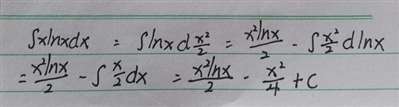 ∫xlnxdx = ∫lnx d x²/2 = x²lnx/2 - ∫x²/2 dlnx
= x²lnx/2 - ∫x/2 dx = x²lnx/2 - x²/4 + C